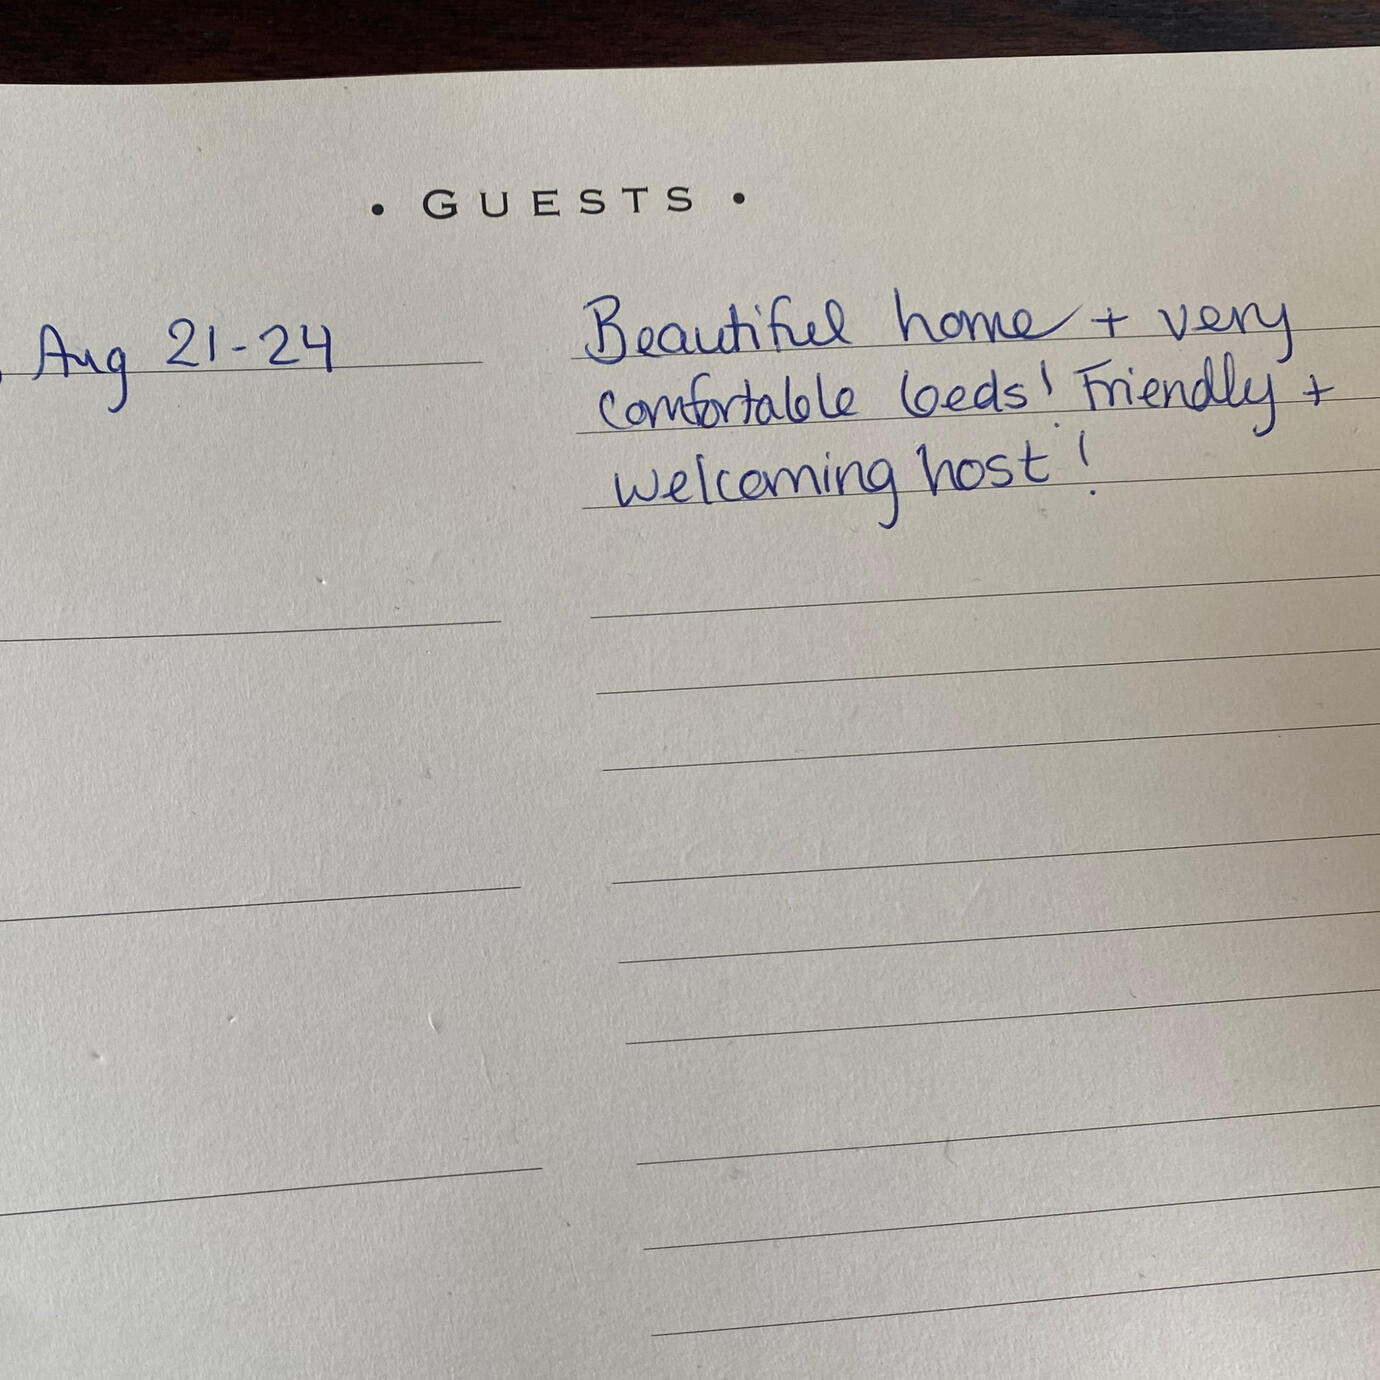 • GUESTS •
Aug 21-24
Beautiful home + very
comfortable beds! Friendly +
welcoming host!